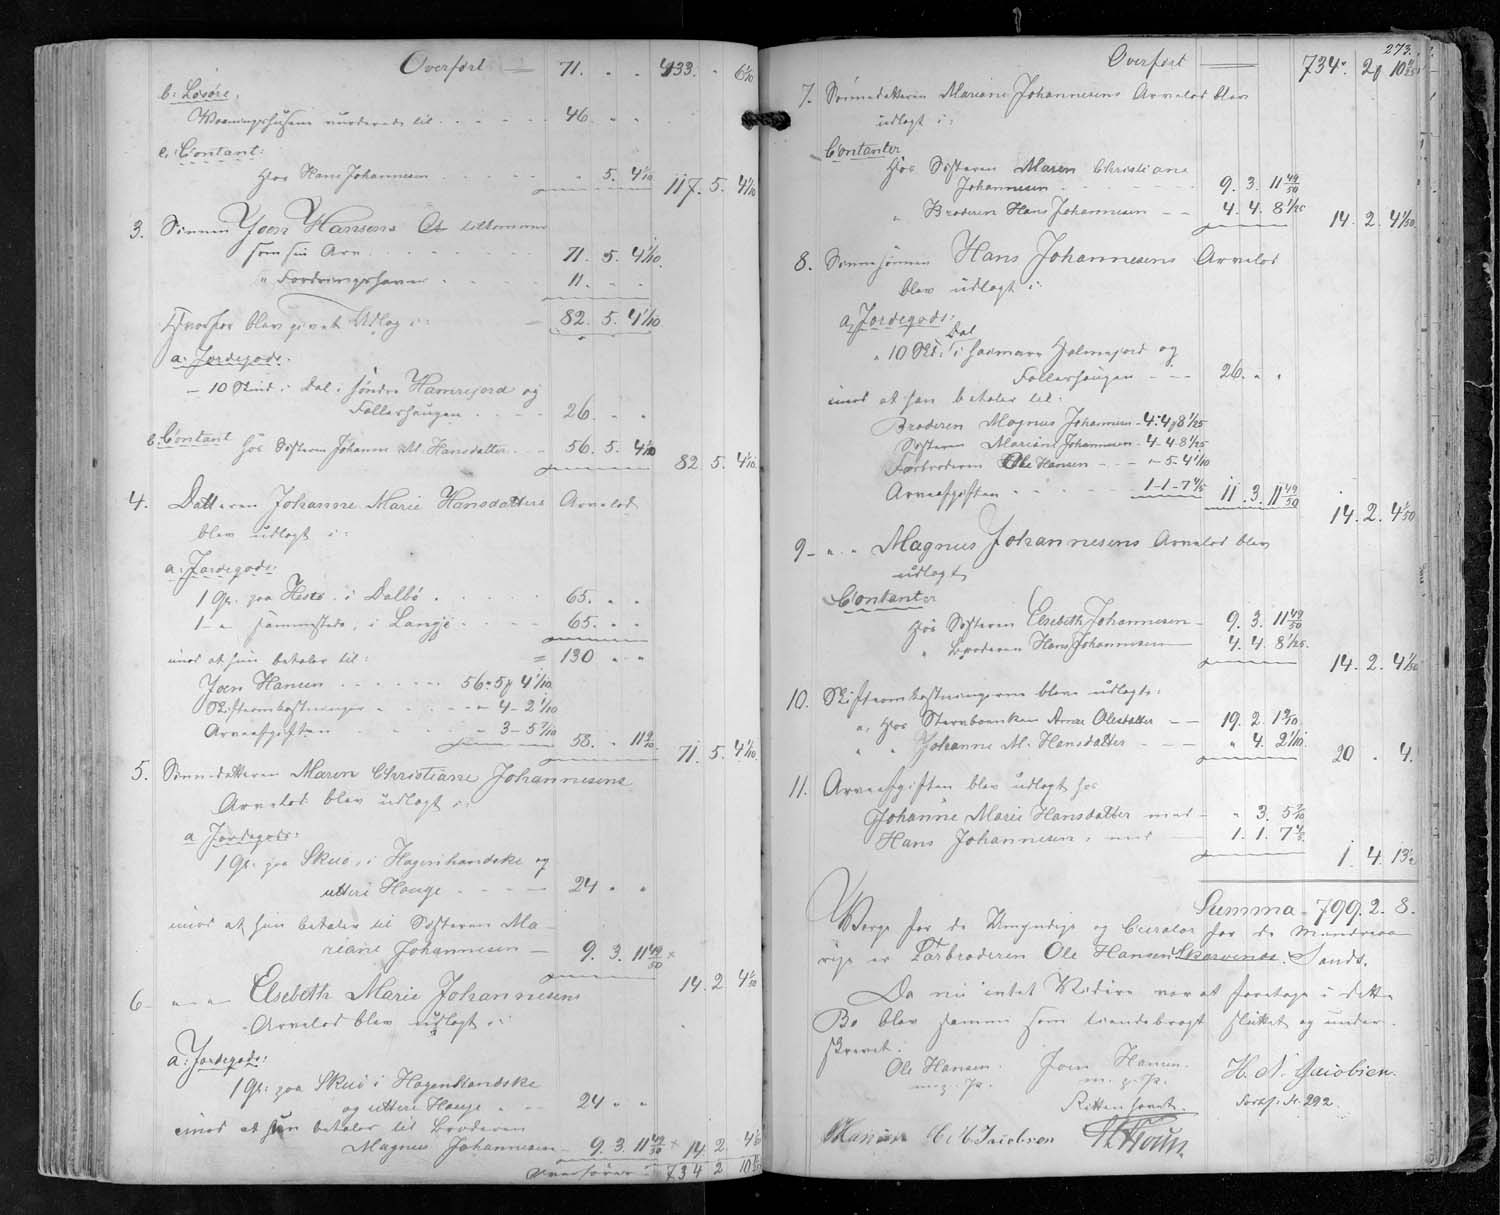 Overført — 71. " " 433. " 6 1/10
b: Løsøre.
Vaaningshusene vurderede til . . . . . 46. " "
c: Contant:
Hos Hans Johannesen . . . . . " 5. 4 1/10 117. 5. 4 1/10
3. Sønnen Joen Hansens tilkommer
som sin Arv . . . . . . 71. 5. 4 1/10
" Fordringshaver . . . . . 11. " "
Hvorfor blev givet Udlæg i: 82. 5. 4 1/10
a: Jordegods:
— 10 Skind i Dal, søndre Hamrejord og
Follershaugen . . . . 26. " "
b: Contant hos Søsteren Johanne M. Hansdatter . . . 56. 5. 4 1/10 82. 5. 4 1/10
4. Datteren Johanne Marie Hansdatters Arvelod
blev udlagt i:
a: Jordegods:
1 Gl. paa Heste i Dalbø . . . . . 65. " "
1 — " sammesteds, i Langje . . . . 65. " "
imod at hun betaler til: = 130 " "
Joen Hansen . . . . . . 56 " 5 β 4 1/10
Skifteomkostninger " . . . . " 4 - 2 1/10
Arveafgiften . . . . . " 3 - 5 7/10 58. " 11 9/10 71. 5. 4 1/10
5. Sønnedatteren Maren Christiane Johannesens
Arvelod blev udlagt i:
a Jordegods:
1 Gl. paa Skuø, i Hagenhandske og
uttere Houge - - - - 24 " "
imod at hun betaler til Søsteren Ma-
riane Johannesen — 9. 3. 11 49/50 × 14. 2. 4 1/50
6 — " — " — Elsebeth Marie Johannesens
Arvelod blev udlagt i:
a: Jordegods:
1 Gl: paa Skuø i Hagenhandske
og uttere Houge . - - 24 " "
imod at hun betaler til Broderen
Magnus Johannesen — 9. 3. 11 49/50 × 14. 2. 4 1/50
Overføres = 734 2 10
273.
Overført — 734 " 2 β 10
7. Sønnedatteren Mariane Johannesens Arvelod blev
udlagt i:
Contanter
Hos Søsteren Maren Christiane
Johannesen - - - - - - 9. 3. 11 49/50
" Broderen Hans Johannesen - - 4. 4. 8 1/25 14. 2. 4 1/50
8. Sønnesønnen Hans Johannesens Arvelod
blev udlagt i:
a, Jordegods:
" 10 Skd: i Dal Hamrejord og
Follershaugen - - - 26. " "
imod at han betaler til:
Broderen Magnus Johannesen - 4 " 4 β 8 1/25
Søsteren Mariane Johannesen - 4 - 4 - 8 1/25
Farbroderen Ole Hansen - - - " - 5 - 4 1/10
Arveafgiften . . . . . 1 - 1 - 7 4/5 11. 3. 11 49/50 14. 2. 4 1/50
9 — " — " Magnus Johannesens Arvelod blev
udlagt
Contanter
Hos Søsteren Elsebeth Johannesen — 9. 3. 11 49/50
" Broderen Hans Johannesen — 4. 4. 8 1/25 14. 2. 4 1/50
10. Skifteomkostningerne bleve udlagte:
a, Hos Stervboenken Anne Olesdatter — 19. 2. 1 9/10
" " Johanne M. Hansdatter - - - " 4. 2 1/10 20 " 4.
11. Arveafgiften blev udlagt hos
Johanne Marie Hansdatter med — " 3. 5 7/10
Hans Johannesen, med — 1. 1. 7 4/5 1. 4. 13 1/2
Summa — 799. 2. 8.
Værge for de Umyndige og Curator for de Mindreaa-
rige er Farbroderen Ole Hansen Skarvenes, Sands.
Da nu intet Videre var at foretage i dette
Bo blev samme som tilendebragt sluttet og under-
skrevet.
Ole Hansen. Joen Hansen. H. N. Jacobsen.
m. p. P. m. p. P. Fortf: Nr. 292.
Rettens Forvt.